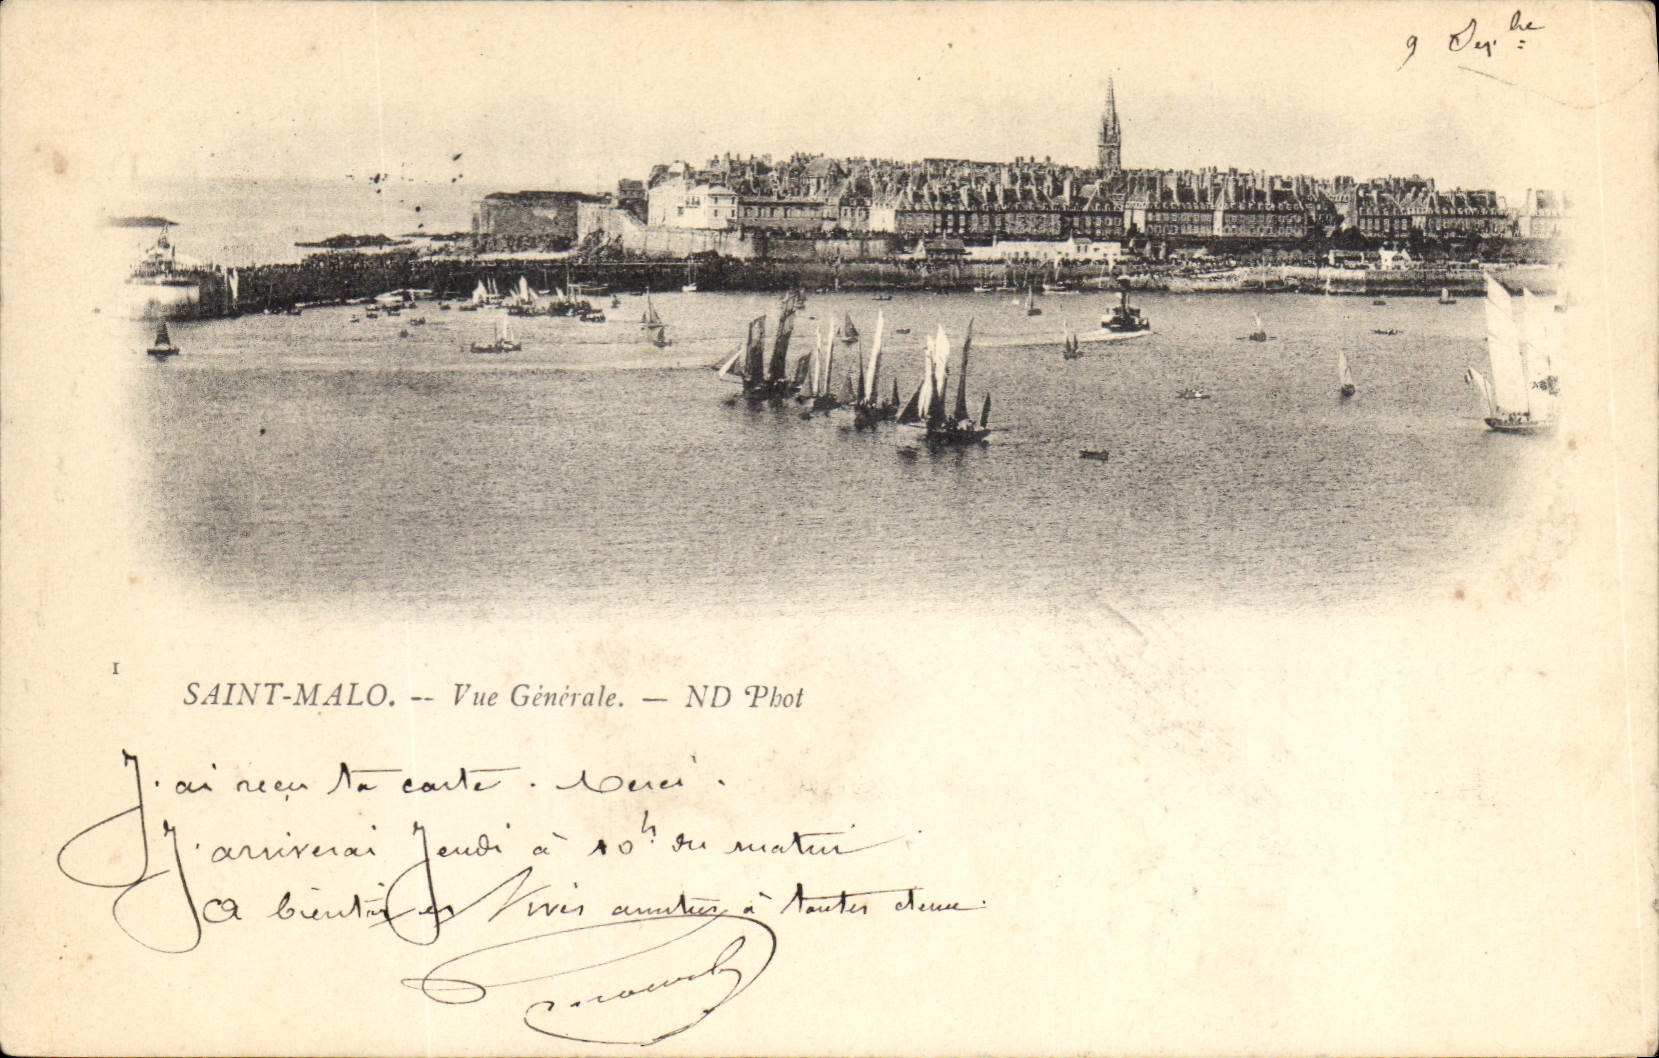 9 Sep.bre
1
SAINT-MALO. -- Vue Générale. — ND Phot
J'ai reçu ta carte. Merci.
J'arriverai Jeudi à 10h. du matin.
A bientôt et Vives amitiés à toutes deux.